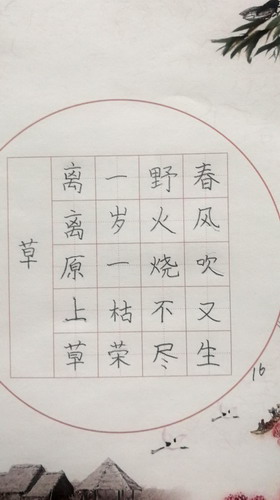 草
离离原上草
一岁一枯荣
野火烧不尽
春风吹又生
16